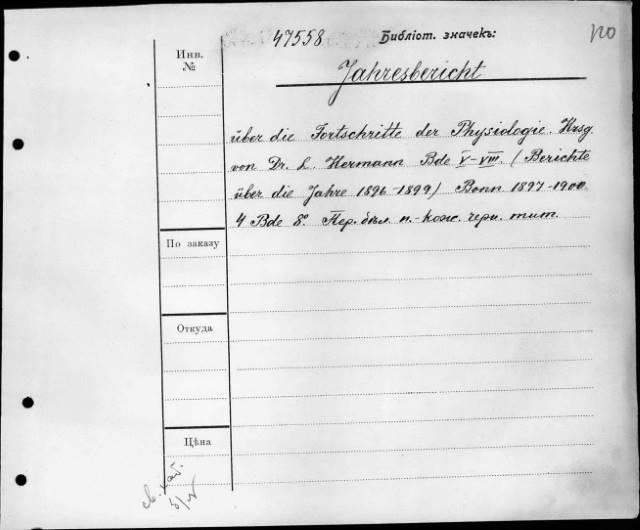 47558 Библіот. значекъ:
Инв.
№
Jahresbericht
über die Fortschritte der Physiologie. Hrsg.
von Dr. L. Hermann Bde V-VIII. (Berichte
über die Jahre 1896-1899) Bonn 1897-1900.
4 Bde 8°. Пер. бѣл. п.-кож. черн. тит.
По заказу
Откуда
Цѣна